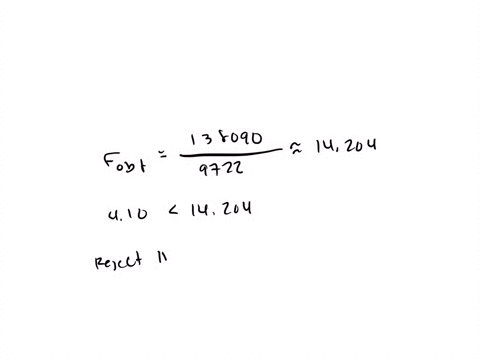 Fobt = 138090 / 9722 ≈ 14.204
4.10 < 14.204
Reject